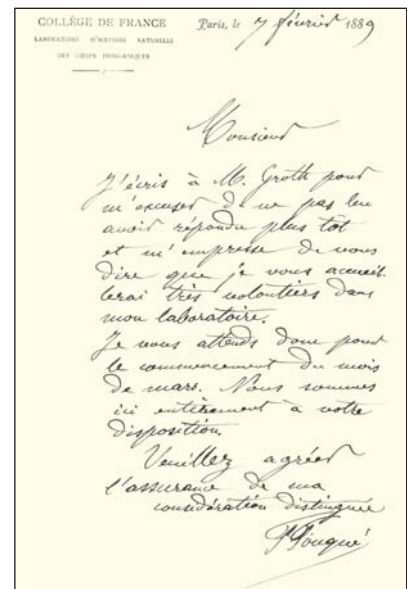 COLLÈGE DE FRANCE
LABORATOIRE D'HISTOIRE NATURELLE
DES CORPS INORGANIQUES
Paris, le 7 février 1889
Monsieur
J'écris à M. Groth pour
m'excuser de ne pas lui
avoir répondu plus tôt
et m'empresse de vous
dire que je vous accueil-
lerai très volontiers dans
mon laboratoire.
Je vous attends donc pour
le commencement du mois
de mars. Nous sommes
ici entièrement à votre
disposition.
Veuillez agréer
l'assurance de ma
considération distinguée
F Fouqué